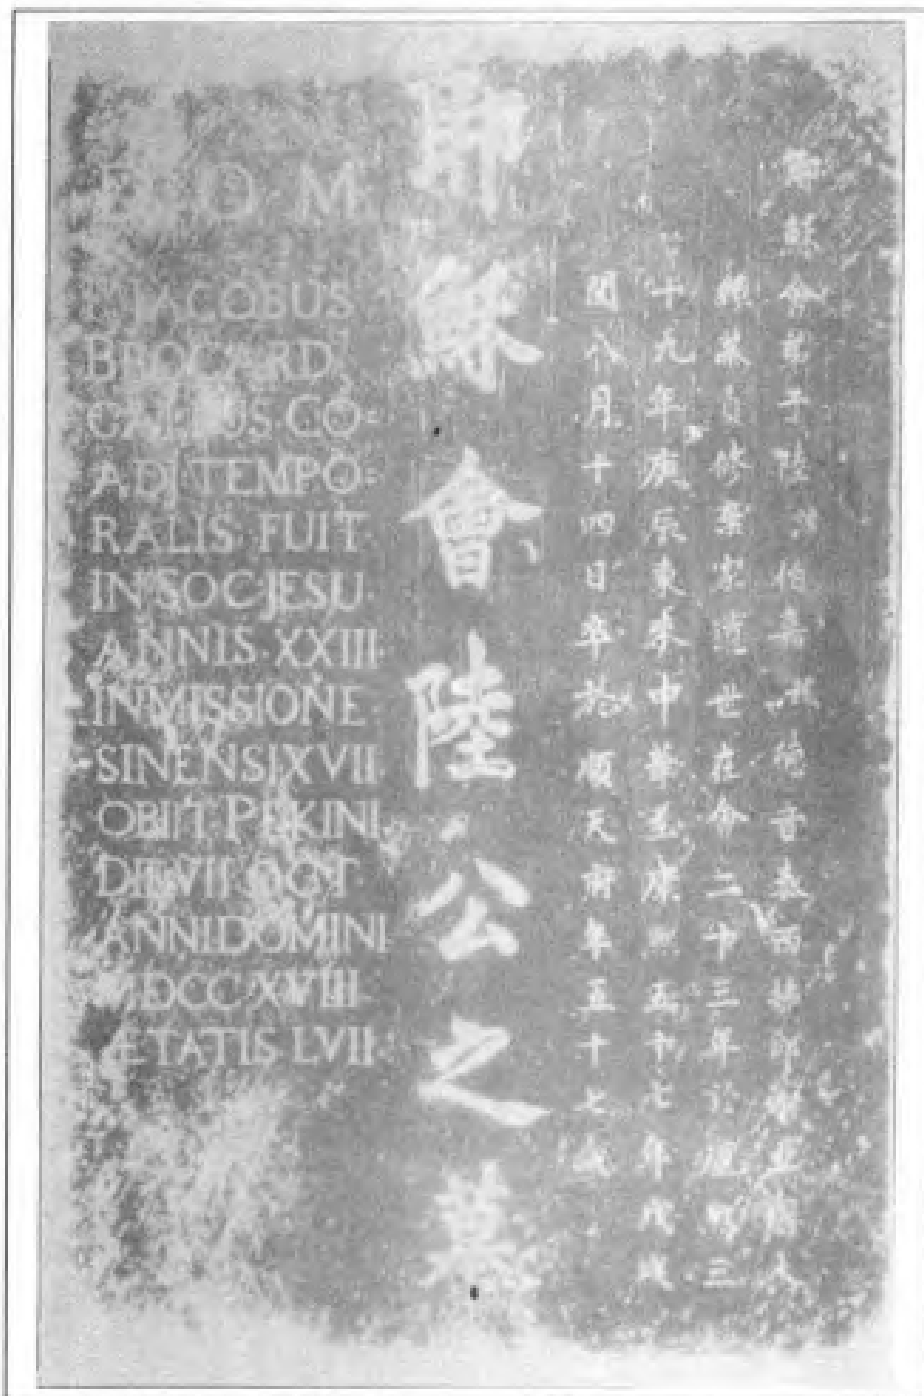 D. O. M.
JACOBUS
BROCARD
GALLUS·CO=
ADJ·TEMPO=
RALIS·FUIT
IN SOC·JESU
ANNIS·XXIII
IN MISSIONE
SINENSI XVII
OBIIT PEKINI
DIE VII OCT
ANNI DOMINI
MDCC·XVIII
ÆTATIS LVII
耶穌會陸公之墓
耶穌會弟子陸伯嘉德音泰西拂郎濟亞國人
緣慕貞修棄家遁世在會二十三年於康熙三
十九年庚辰東來中華至康熙五十七年戊戌
閏八月十四日卒於順天府年五十七歲